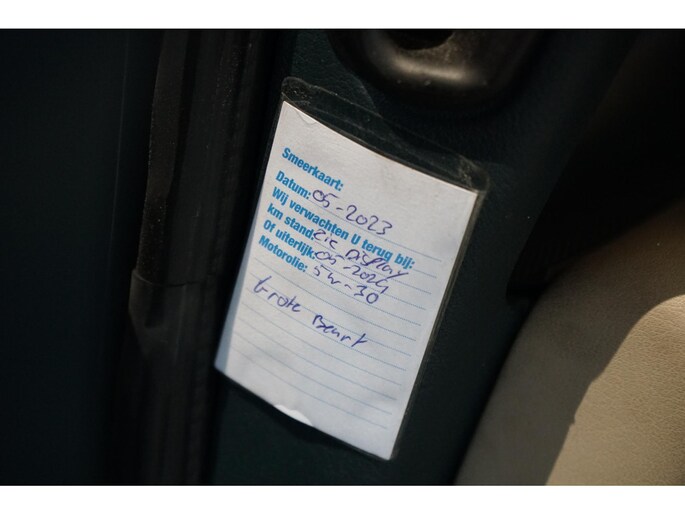 Smeerkaart:
Datum: 05-2023
Wij verwachten U terug bij:
km stand: zie Display
Of uiterlijk: 05-2024
Motorolie: 5w-30
Grote Beurt